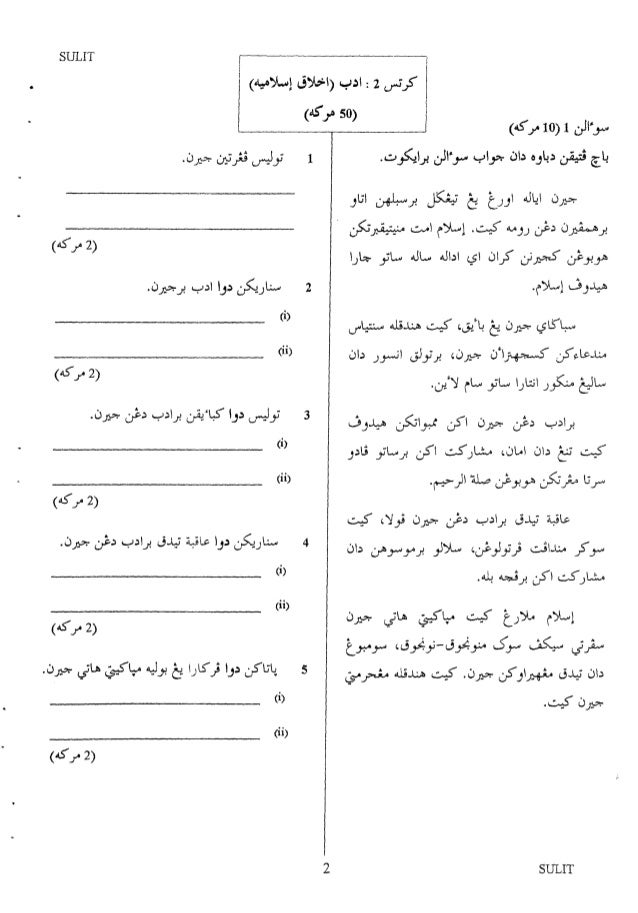 SULIT
كرتس 2 : ادب (اخلاق إسلاميه)
(50 مركه)
سوءالن 1 (10 مركه)
باچ ڤتيقن دباوه دان جواب سوءالن برايكوت.
جيرن اياله اورڠ يڠ تيڠڬل برسبلهن اتاو
برهمڤيرن دڠن رومه كيت. إسلام امت منيتيقبرتكن
هوبوڠن كجيرنن كران اي اداله ساله ساتو چارا
هيدوڤ إسلام.
سباڬاي جيرن يڠ باءيق، كيت هندقله سنتياس
مندعاءكن كسجهتراءن جيرن، برتولق انسور دان
ساليڠ منڬور انتارا ساتو سام لاءين.
برادب دڠن جيرن اكن ممبواتكن هيدوڤ
كيت تنڠ دان امان، مشاركت اكن برساتو ڤادو
سرتا مڠرتكن هوبوڠن صلة الرحيم.
عاقبة تيدق برادب دڠن جيرن ڤولا، كيت
سوكر منداڤت ڤرتولوڠن، سلالو برموسوهن دان
مشاركت اكن برڤچه بله.
إسلام ملارڠ كيت مڽاكيتي هاتي جيرن
سڤرتي سيكڤ سوك منونجوق-نونجوق، سومبوڠ
دان تيدق مڠهيراوكن جيرن. كيت هندقله مڠحرمتي
جيرن كيت.
1 توليس ڤڠرتين جيرن.
(2 مركه)
2 سنارايكن دوا ادب برجيرن.
(i)
(ii)
(2 مركه)
3 توليس دوا كباءيقن برادب دڠن جيرن.
(i)
(ii)
(2 مركه)
4 سنارايكن دوا عاقبة تيدق برادب دڠن جيرن.
(i)
(ii)
(2 مركه)
5 ڽاتاكن دوا ڤركارا يڠ بوليه مڽاكيتي هاتي جيرن.
(i)
(ii)
(2 مركه)
2
SULIT